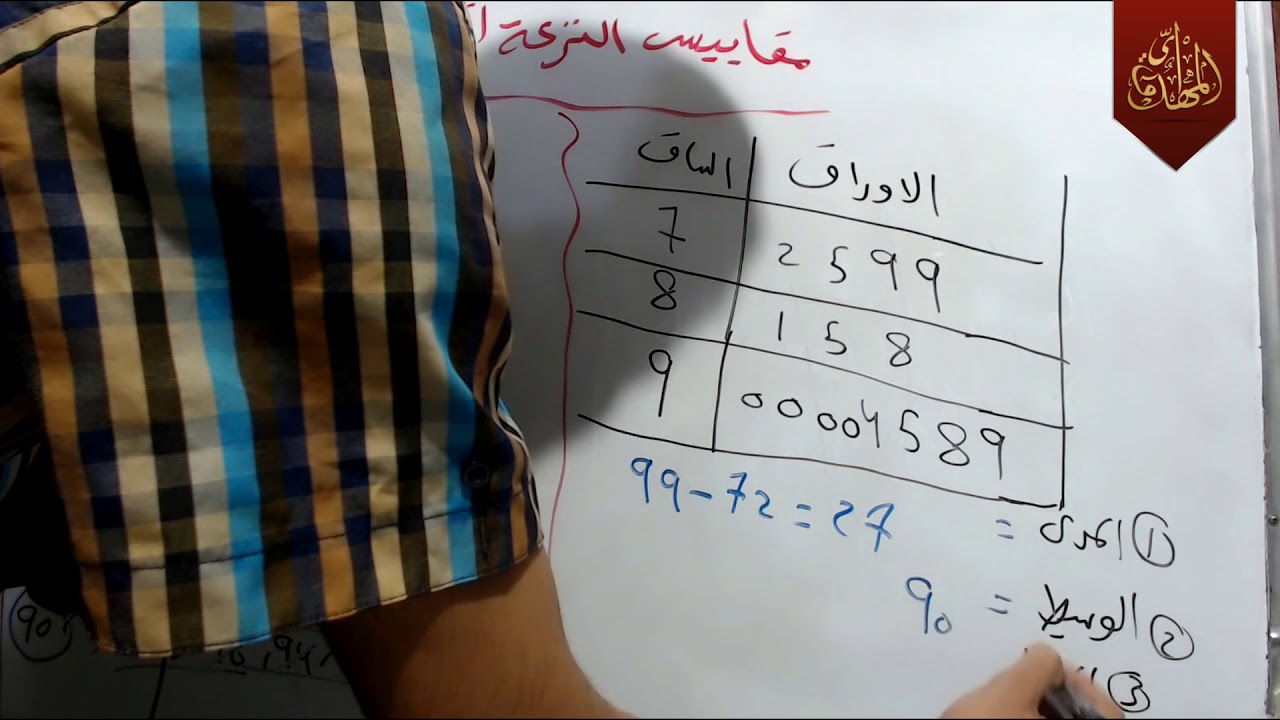 مقاييس النزعة
المهدي
الساق الاوراق
7 2 5 9 9
8 1 5 8
9 0 0 0 0 4 5 8 9
① المدى = 99 - 72 = 27
② الوسيط = 90
③
90